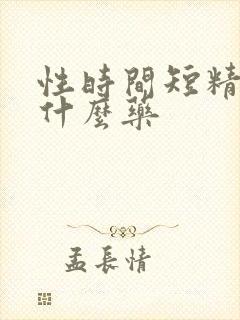 性時間短精
什麼藥
孟長情